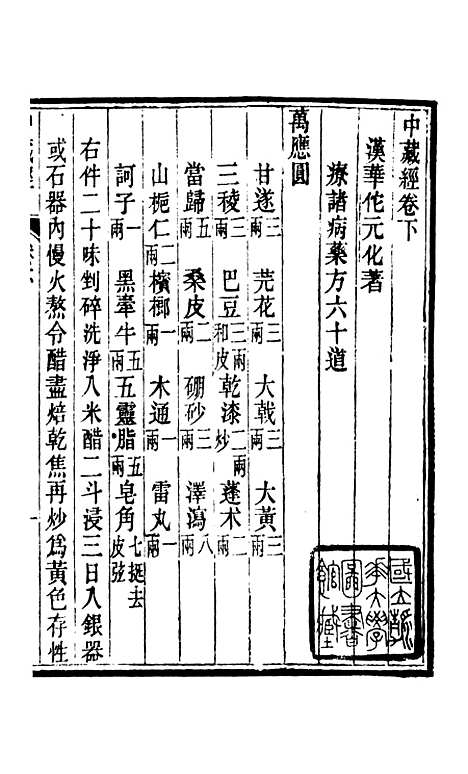 中藏經卷下
漢華佗元化著
療諸病藥方六十道
萬應圓
甘遂三兩 芫花三兩 大戟三兩 大黃三兩
三稜三兩 巴豆二兩和皮 乾漆二兩炒 蓬术二兩
當歸五兩 桑皮二兩 硼砂三兩 澤瀉八兩
山梔仁二兩 檳榔一兩 木通一兩 雷丸一兩
訶子一兩 黑牽牛五兩 五靈脂五兩 皂角七挺去皮弦
右件二十味剉碎洗淨入米醋二斗浸三日入銀器
或石器內慢火熬令醋盡焙乾焦再炒爲黃色存性